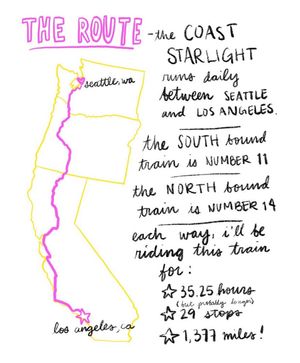 THE ROUTE - the COAST
STARLIGHT
runs daily
between SEATTLE
and LOS ANGELES.
seattle, wa
the SOUTH bound
train is NUMBER 11
the NORTH bound
train is NUMBER 14
each way, i'll be
riding this train
for:
35.25 hours
(but probably longer)
29 stops
1,377 miles!
los angeles, ca